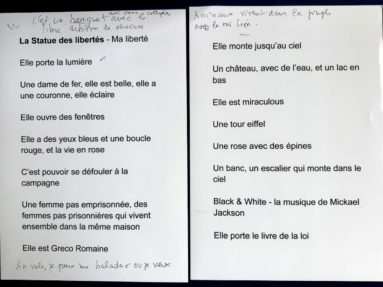 C'est un banquet avec le
libre arbitre de chacun
La Statue des libertés - Ma liberté
Elle porte la lumière
Une dame de fer, elle est belle, elle a
une couronne, elle éclaire
Elle ouvre des fenêtres
Elle a des yeux bleus et une boucle
rouge, et la vie en rose
C'est pouvoir se défouler à la
campagne
Une femme pas emprisonnée, des
femmes pas prisonnières qui vivent
ensemble dans la même maison
Elle est Greco Romaine
En vélo, je peux me balader où je veux
Animaux vivent dans la jungle
avec le roi lion
Elle monte jusqu'au ciel
Un château, avec de l'eau, et un lac en
bas
Elle est miraculous
Une tour eiffel
Une rose avec des épines
Un banc, un escalier qui monte dans le
ciel
Black & White - la musique de Mickael
Jackson
Elle porte le livre de la loi